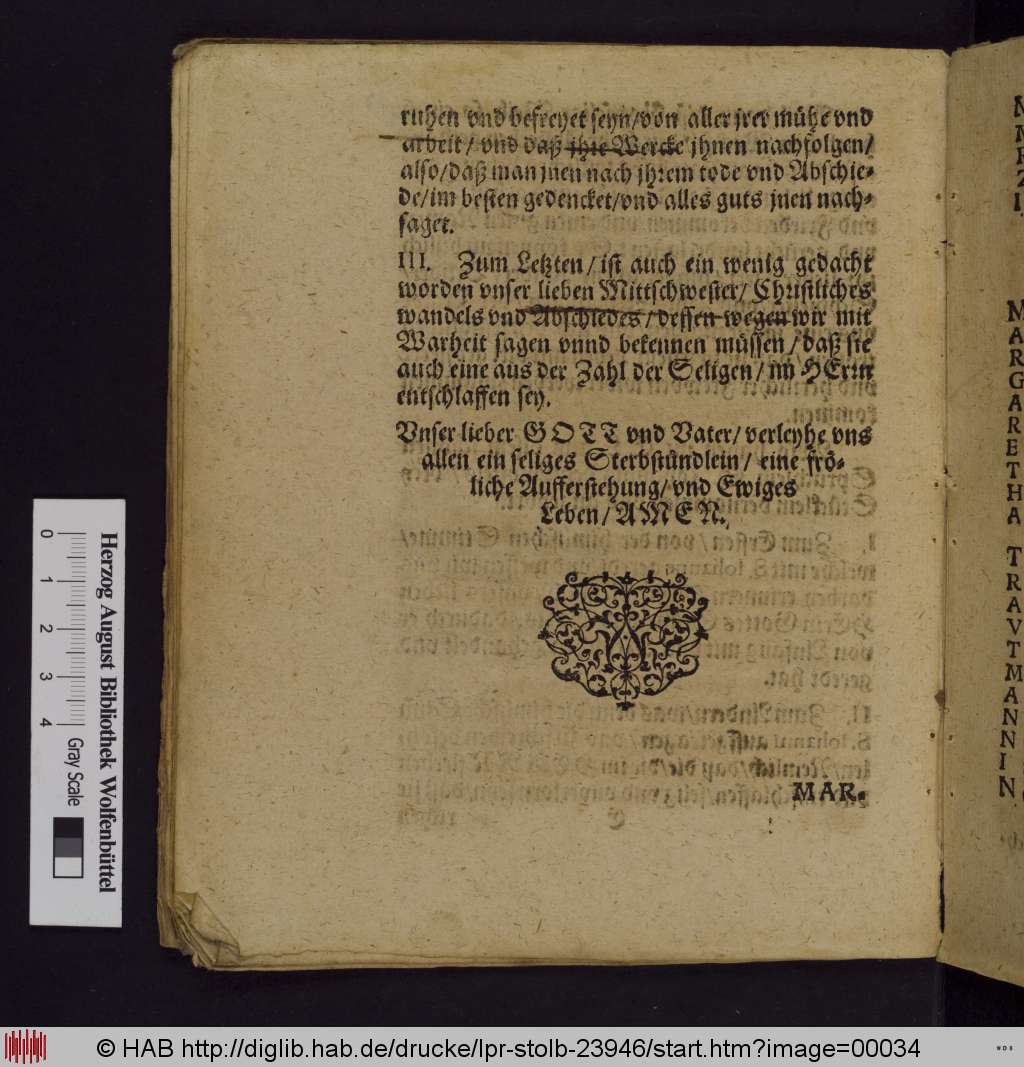 ruhen vnd befreyet seyn/von aller jrer mühe vnd
arbeit/ vnd daß jhre Wercke jhnen nachfolgen/
also/daß man jnen nach jhrem tode vnd Abschie-
de/im besten gedencket/vnd alles guts jnen nach-
saget.
III. Zum Letzten/ ist auch ein wenig gedacht
worden vnser lieben Mittschwester/ Christliches
wandels vnd Abschiedes/dessen wegen wir mit
Warheit sagen vnnd bekennen müssen/daß sie
auch eine aus der Zahl der Seligen/ im HErrn
entschlaffen sey.
Vnser lieber GOTT vnd Vater/ verleyhe vns
allen ein seliges Sterbstündlein/ eine frö-
liche Aufferstehung/ vnd Ewiges
Leben/ AMEN.
MAR-
MARGARETHA TRAVTMANNIN
Herzog August Bibliothek Wolfenbüttel
0 1 2 3 4
Gray Scale
© HAB http://diglib.hab.de/drucke/lpr-stolb-23946/start.htm?image=00034